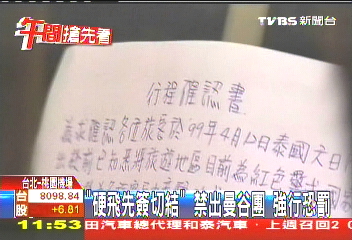 TVBS新聞台
午間搶先看
行程確認書
茲求確認各位旅客於'99年4月12日泰國六日
出發前已知悉將旅遊地區目前為紅色警
台北-桃園機場
台股 8098.84
+6.81
"硬飛先簽切結" 禁出曼谷團 強行恐罰
11:53 田汽車總代理和泰汽車‧上週召回2